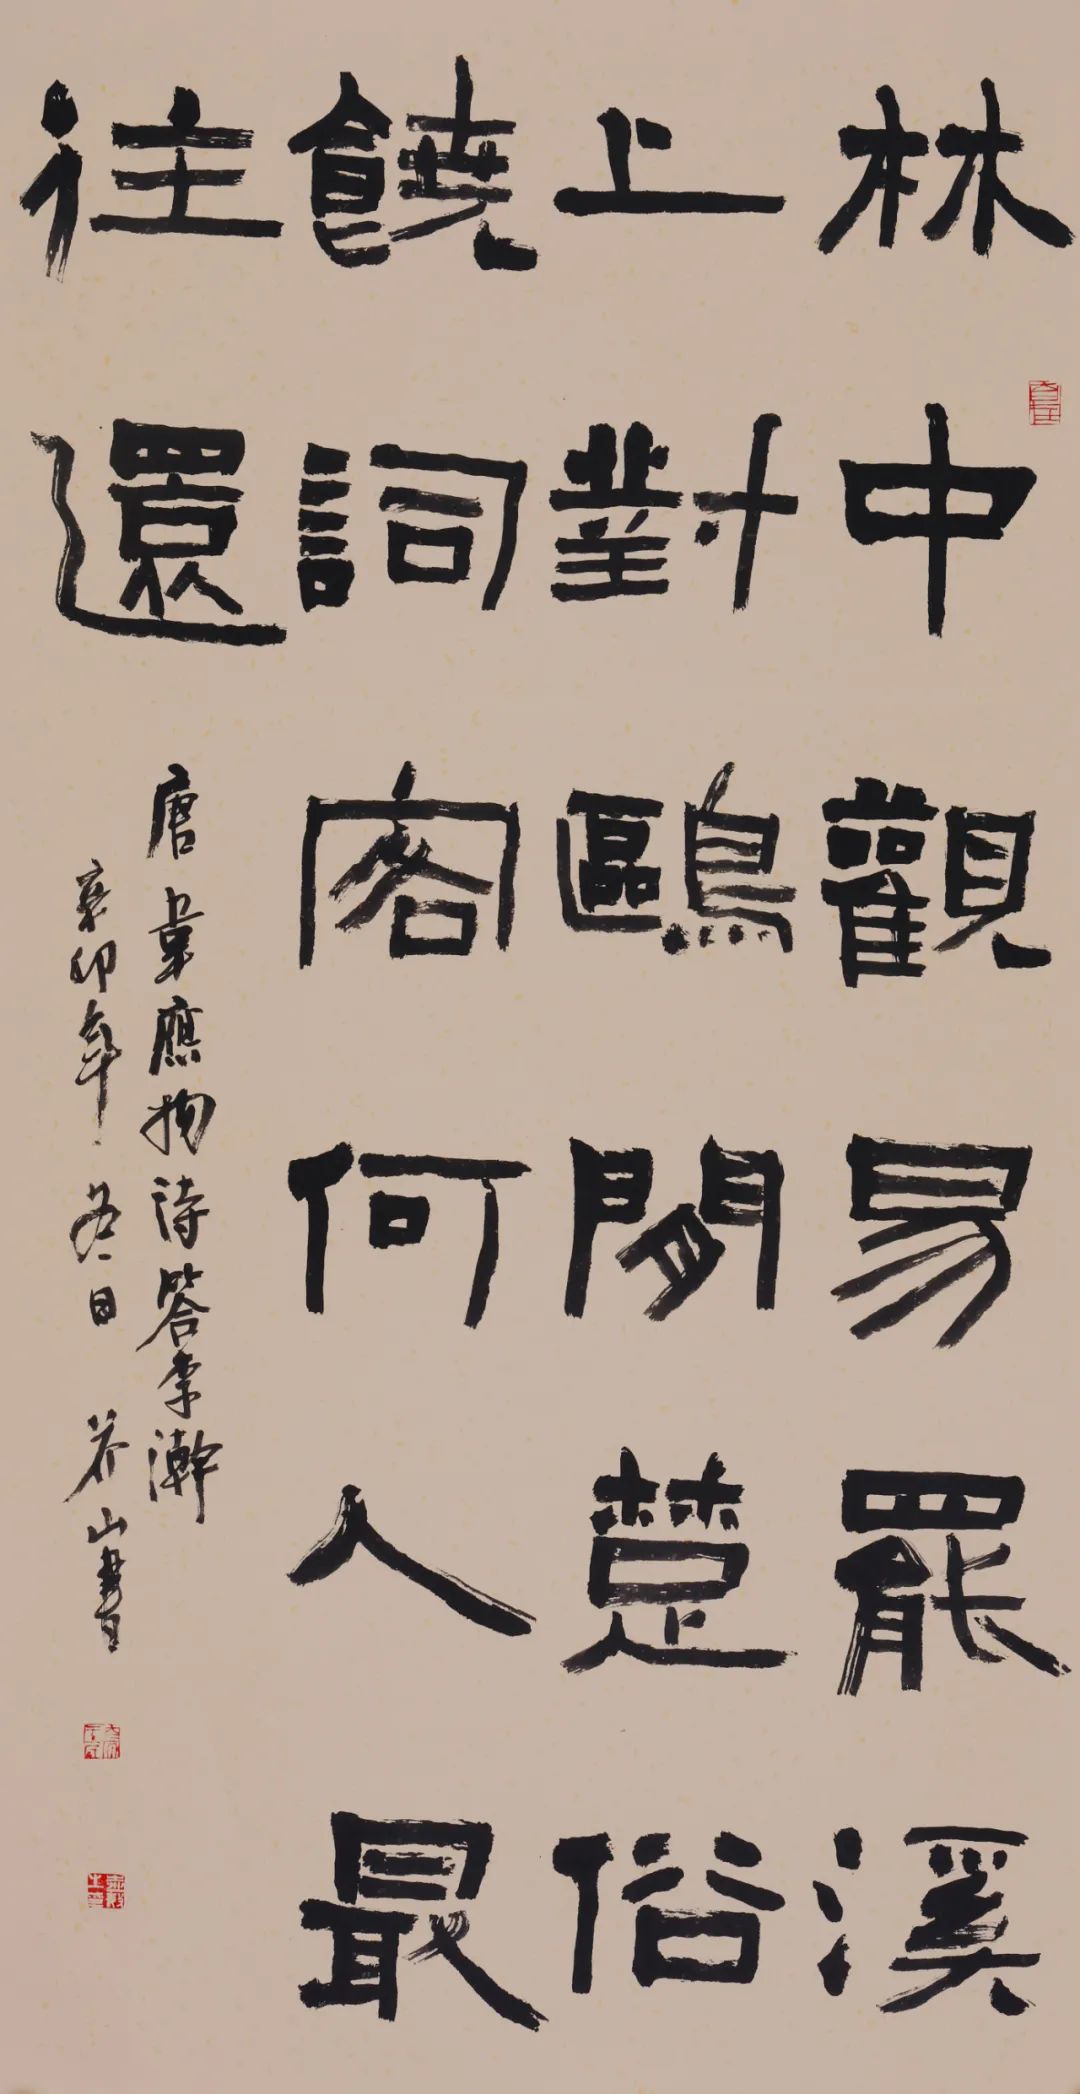 林中觀易罷溪
上對鷗閒楚俗
饒詞客何人最
往還
唐韋應物詩答李澣
辛卯年冬日芥山書